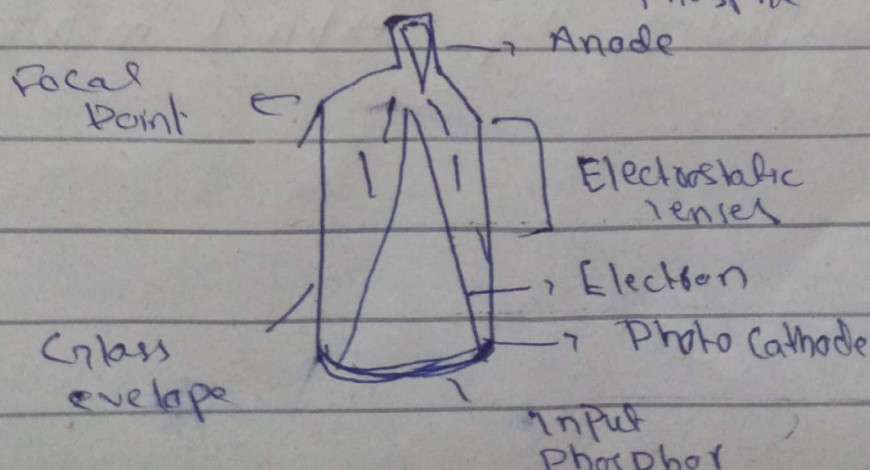 Anode
Focal
Point
Electrostatic
lenses
Electron
Photo Cathode
Glass
envelope
Input
Phosphor